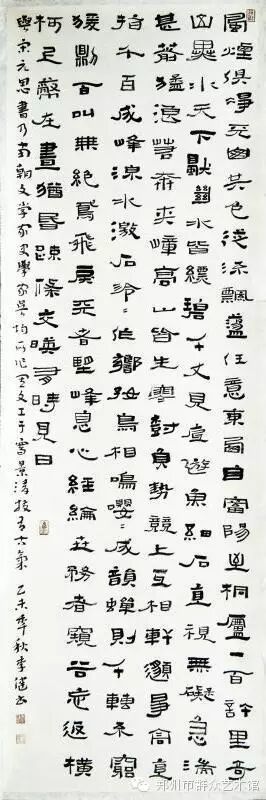 風煙俱淨天山共色從流飄蕩任意東西自富陽至桐廬一百許里奇
山異水天下獨絕水皆縹碧千丈見底遊魚細石直視無礙急湍
甚箭猛浪若奔夾嶂高山皆生寒樹負勢競上互相軒邈爭高直
指千百成峰泉水激石泠泠作響好鳥相鳴嚶嚶成韻蟬則千轉不窮
猨則百叫無絕鳶飛戾天者望峰息心經綸世務者窺谷忘返橫
柯上蔽在晝猶昏疎條交映有時見日
與宋元思書乃南朝文學家史學家吳均所作是文工于寫景清拔有古氣 乙未年秋李健書
郑州市群众艺术馆